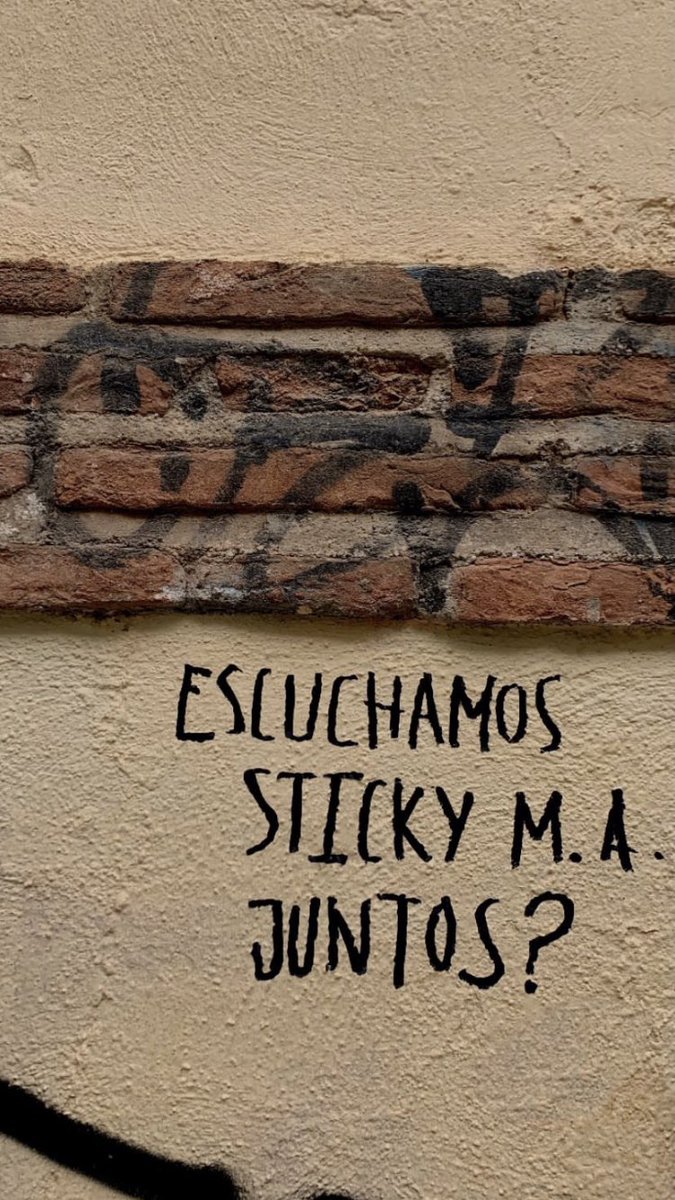 ESCUCHAMOS
STICKY M.A.
JUNTOS?